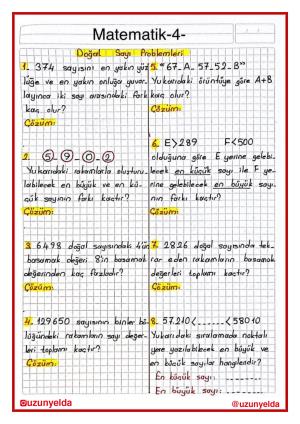 Matematik-4-
Doğal Sayı Problemleri
1. 374 sayısını en yakın yüz
lüğe ve en yakın onluğa yuvar
layınca iki sayı arasındaki fark
kaç olur?
Çözüm:
2. 5 9 0 2
Yukarıdaki rakamlarla oluşturu
labilecek en büyük ve en kü-
çük sayının farkı kaçtır?
Çözüm:
3. 6498 doğal sayısındaki 4'ün
basamak değeri 8'in basamak
değerinden kaç fazladır?
Çözüm:
4. 129650 sayısının binler bö-
lüğündeki rakamların sayı değer-
leri toplamı kaçtır?
Çözüm:
5. "67-A-57-52-B"
Yukarıdaki örüntüye göre A+B
kaç olur?
Çözüm:
6. E>289 F<500
olduğuna göre E yerine gelebi-
lecek en küçük sayı ile F ye-
rine gelebilecek en büyük sayı-
nın farkı kaçtır?
Çözüm:
7. 2826 doğal sayısında tek-
rar eden rakamların basamak
değerleri toplamı kaçtır?
Çözüm:
8. 57210<.......<58010
Yukarıdaki sıralamada noktalı
yere yazılabilecek en büyük ve
en küçük sayılar hangileridir?
En küçük sayı:
En büyük sayı:
@uzunyelda
@uzunyelda